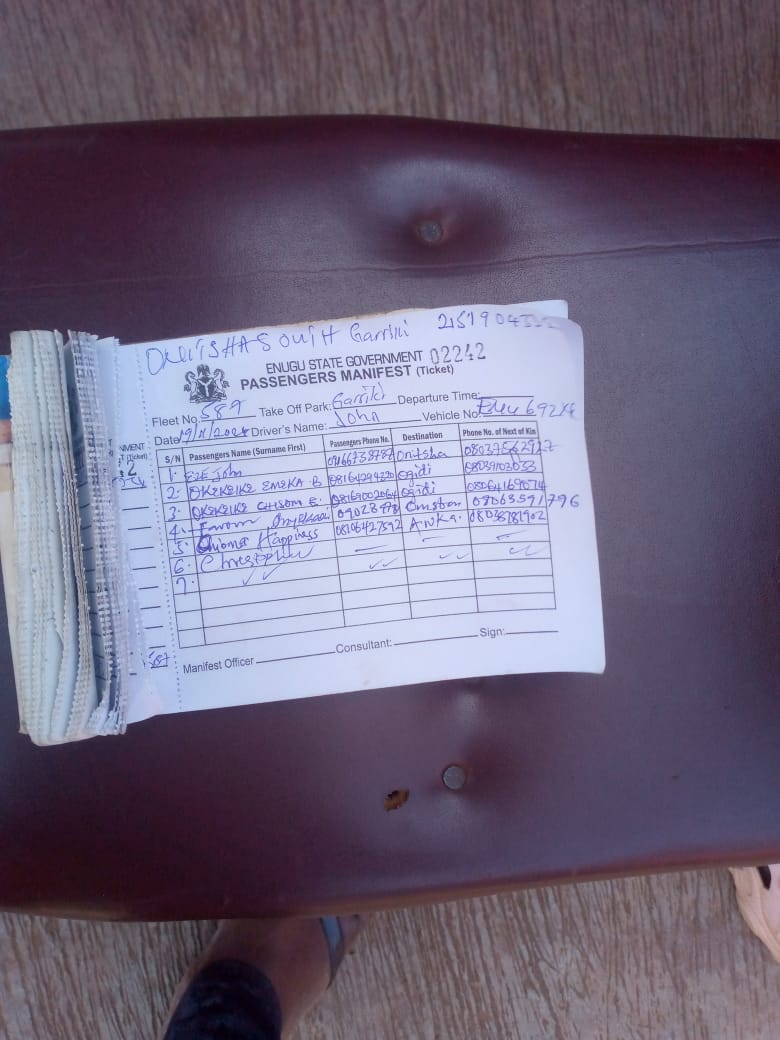 ONITSHA SOUTH Garriki
ENUGU STATE GOVERNMENT 02242
PASSENGERS MANIFEST (Ticket)
Fleet No. 589 Take Off Park: Garriki Departure Time:
Date 19/11/2024 Driver's Name: John Vehicle No:
S/N Passengers Name (Surname First) Passengers Phone No. Destination Phone No. of Next of Kin
1. EZE John Onitsha
2. OKEKEIKE EMEKA B 08164294220 Ogidi 08039103033
3. OKEKEIKE CHISOM E. 08169002064 Ogidi 08064169074
4. Favour 08063591796
5. Chioma Happiness 08106427592 AWKA. 08036781902
6. Christopher
7.
Manifest Officer Consultant: Sign: